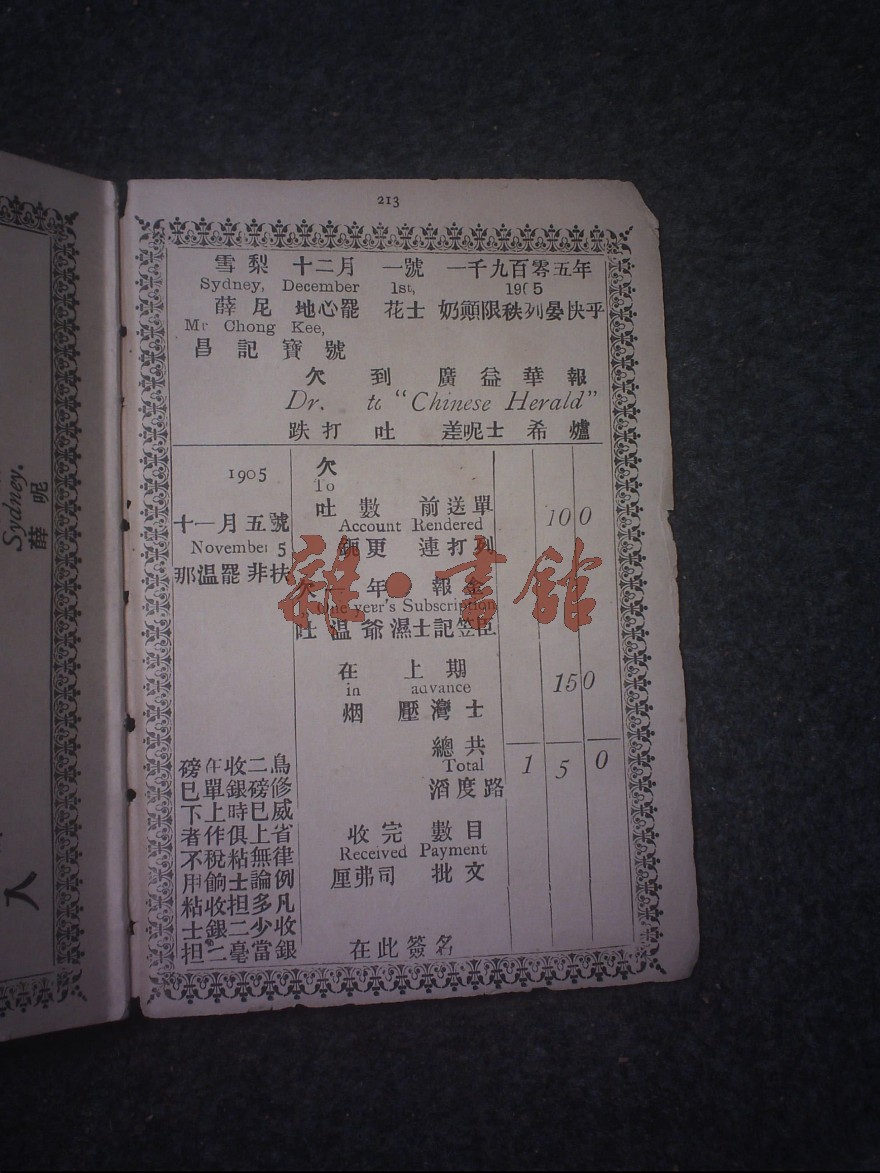 213
雪梨 十二月 一號 一千九百零五年
Sydney, December 1st, 1905
薛尼 地心罷 花士 奶顚限秩列晏快乎
Mr Chong Kee,
昌記寶號
欠到廣益華報
Dr. to “Chinese Herald”
跌打 吐 差呢士希爐
1905
欠
To
吐數 前送單
十一月五號
Account Rendered
100
November 5
鈪更 連打列
那温罷非扶
欠一年報金
„ One year's Subscription
吐温爺濕士記笠臣
在上期
in advance
150
烟 壓灣士
總共
Total
1 5 0
酒度路
收完數目
Received Payment
厘弗司 批文
在此簽名
鳥修威省律例凡收銀
二磅已上無論多少當
收銀時俱粘士担二毫
午單上作稅餉收銀二
磅已下者不用粘士担
Sydney.
薛呢
人
雜·書館